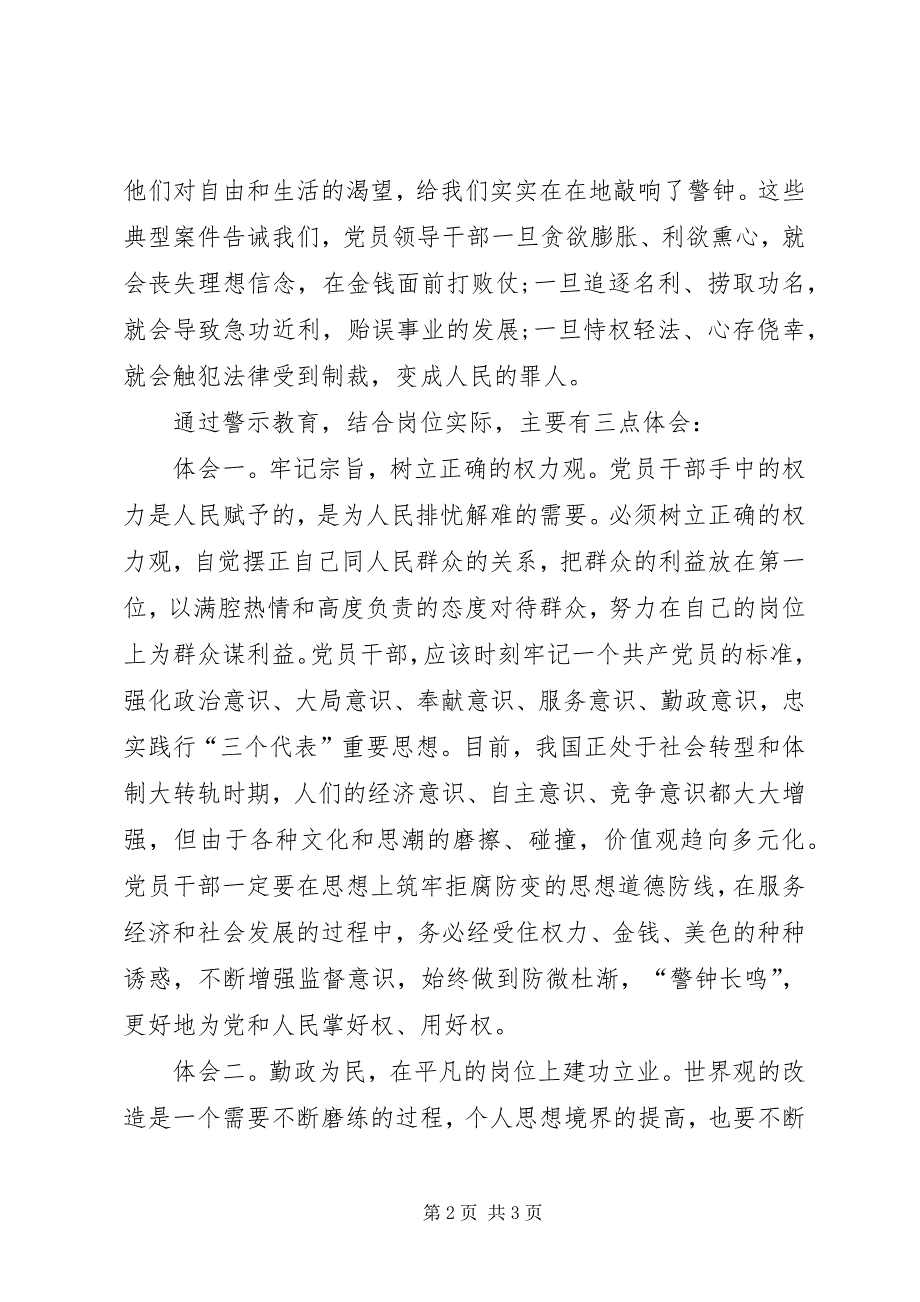 他们对自由和生活的渴望，给我们实实在在地敲响了警钟。这些
典型案件告诫我们，党员领导干部一旦贪欲膨胀、利欲熏心，就
会丧失理想信念，在金钱面前打败仗;一旦追逐名利、捞取功名，
就会导致急功近利，贻误事业的发展;一旦恃权轻法、心存侥幸，
就会触犯法律受到制裁，变成人民的罪人。
通过警示教育，结合岗位实际，主要有三点体会：
体会一。牢记宗旨，树立正确的权力观。党员干部手中的权
力是人民赋予的，是为人民排忧解难的需要。必须树立正确的权
力观，自觉摆正自己同人民群众的关系，把群众的利益放在第一
位，以满腔热情和高度负责的态度对待群众，努力在自己的岗位
上为群众谋利益。党员干部，应该时刻牢记一个共产党员的标准，
强化政治意识、大局意识、奉献意识、服务意识、勤政意识，忠
实践行“三个代表”重要思想。目前，我国正处于社会转型和体
制大转轨时期，人们的经济意识、自主意识、竞争意识都大大增
强，但由于各种文化和思潮的磨擦、碰撞，价值观趋向多元化。
党员干部一定要在思想上筑牢拒腐防变的思想道德防线，在服务
经济和社会发展的过程中，务必经受住权力、金钱、美色的种种
诱惑，不断增强监督意识，始终做到防微杜渐，“警钟长鸣”，
更好地为党和人民掌好权、用好权。
体会二。勤政为民，在平凡的岗位上建功立业。世界观的改
造是一个需要不断磨练的过程，个人思想境界的提高，也要不断
第 2 页 共 3 页